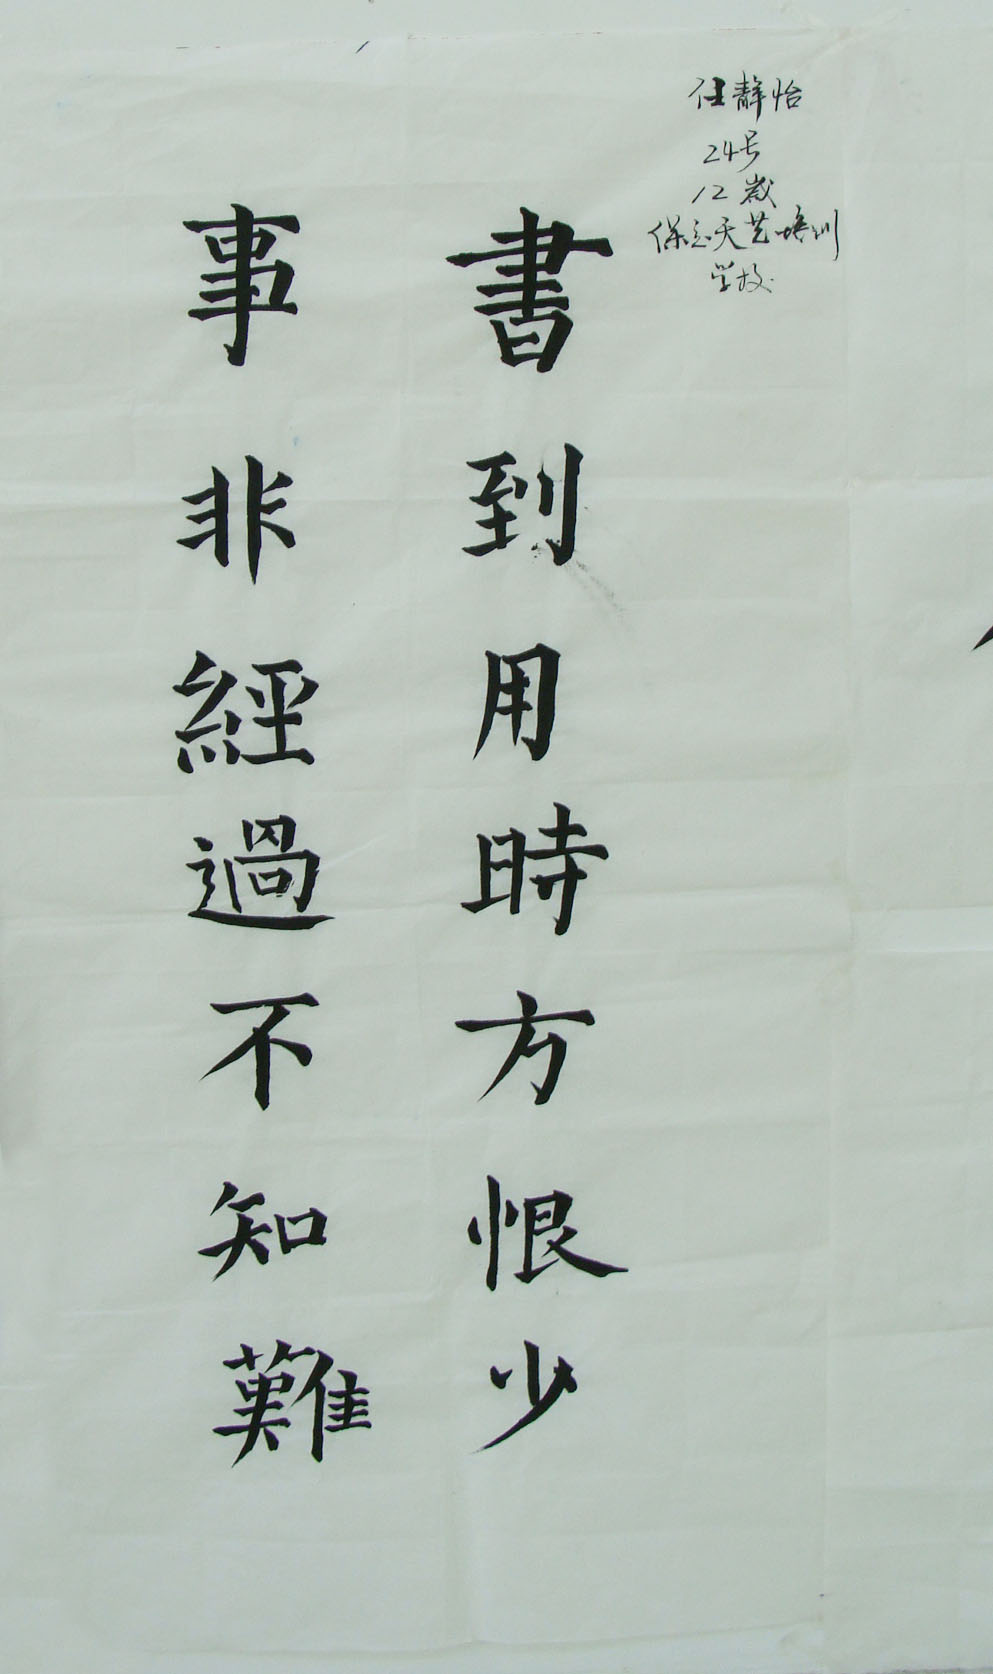 任静怡
24号
12岁
保定天艺培训
学校
書到用時方恨少
事非經過不知難